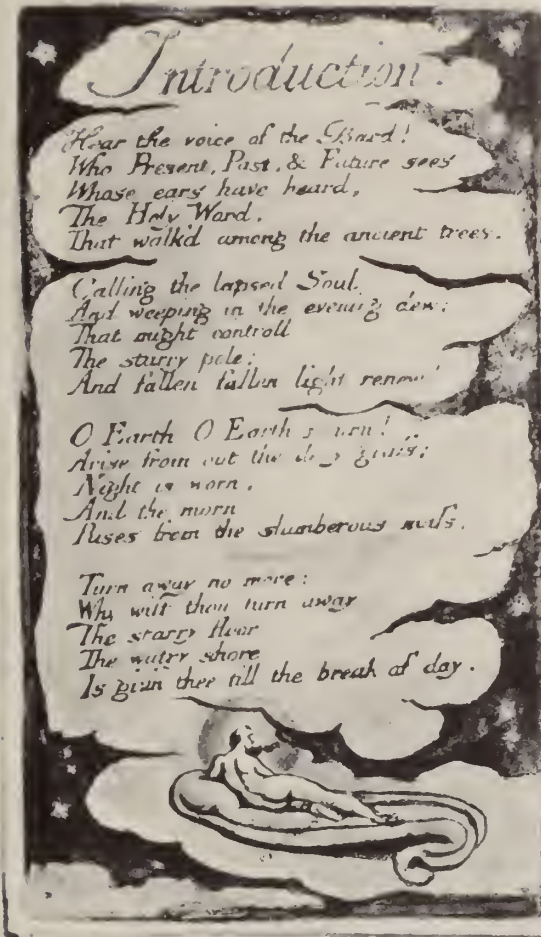 Introduction.
Hear the voice of the Bard!
Who Present, Past, & Future sees
Whose ears have heard,
The Holy Word,
That walk'd among the ancient trees.
Calling the lapsed Soul
And weeping in the evening dew:
That might controll
The starry pole;
And fallen fallen light renew!
O Earth O Earth return!
Arise from out the dewy grass;
Night is worn,
And the morn
Rises from the slumberous mass.
Turn away no more:
Why wilt thou turn away
The starry floor
The watry shore
Is giv'n thee till the break of day.